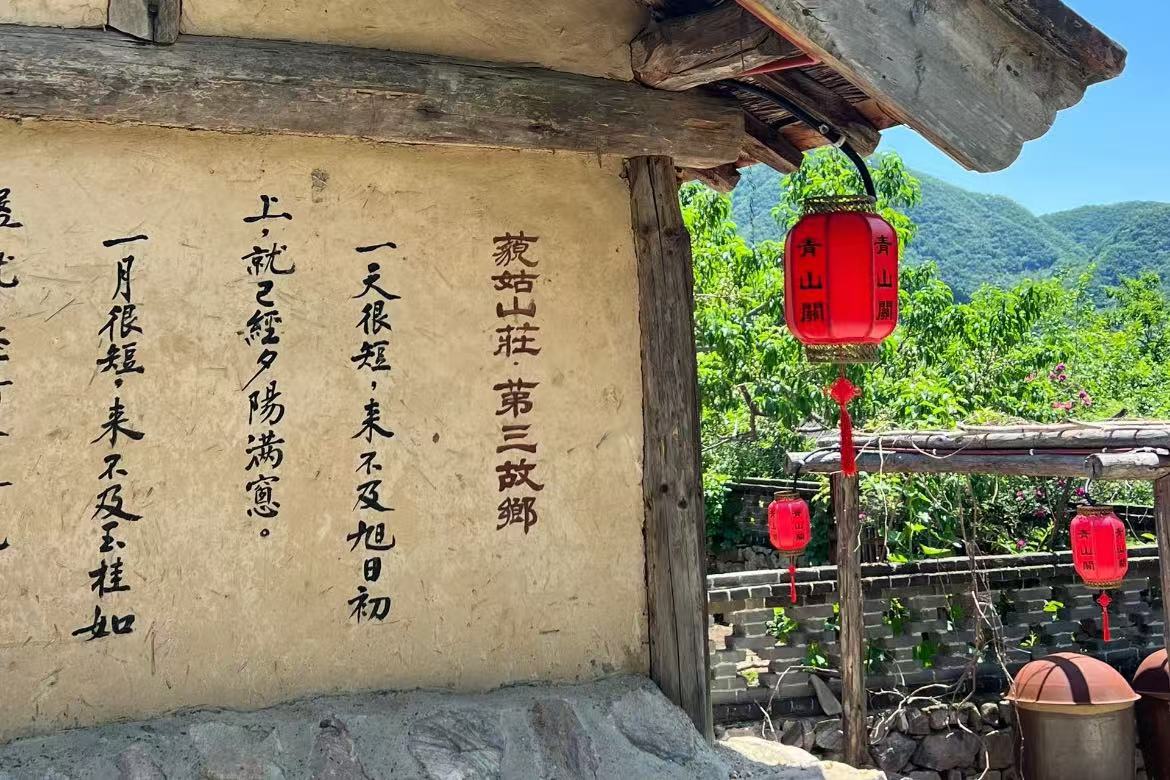 藐姑山莊·苐三故鄉
一天很短，来不及旭日初
上，就已經夕陽满窻。
一月很短，来不及玉桂如
青山關
青山關
青山關